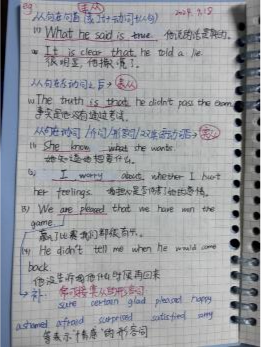 eg
主从
2024.9.18
从句在句首(表示+主动词+从句)
(1) What he said is true. 他说的话是真的。
It is clear that he told a lie.
很明显,他撒谎了。
从句在系动词之后→表从
(1) The truth is that he didn't pass the exam.
事实是他没有通过考试。
She know what she wants.
她知道她想要什么。
(2) I worry about whether I hurt
her feelings. 我担心是否伤害了她的感情。
(3) We are pleased that we have won the
game.
(4) He didn't tell me when he would come
back.
他没告诉我他什么时候再回来
→补:
sure certain glad pleased happy
ashamed afraid surprised satisfied sorry
等表示"情感"的形容词